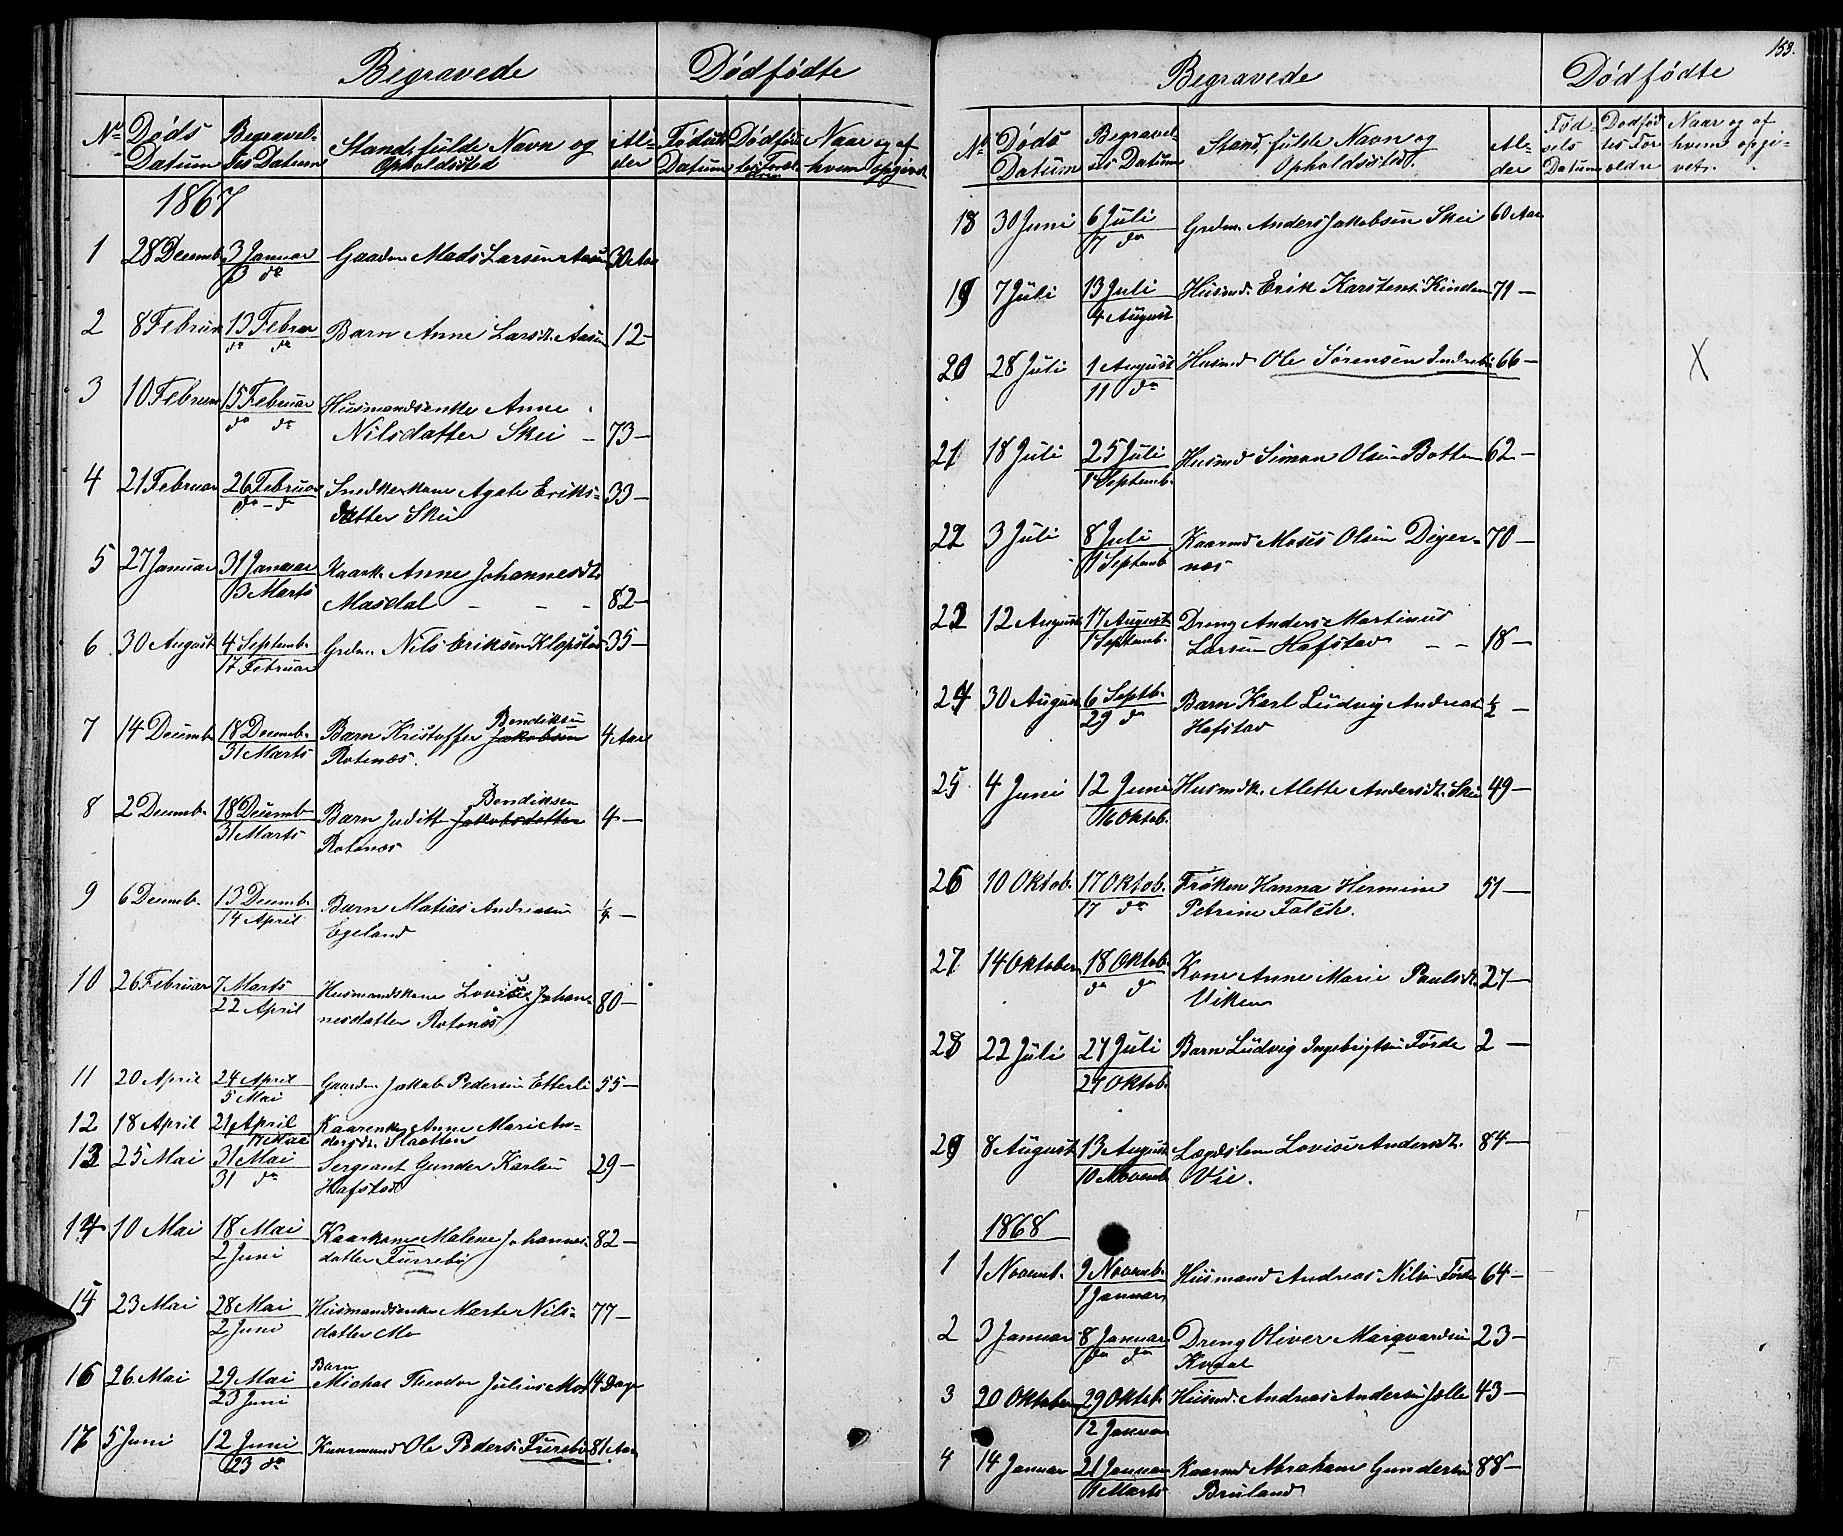 Begravede Dødfødte
No Døds Datum Begravelses Datum Stand, fulde Navn og Opholdssted Alder Fødsels Datum Dødfødtes Forældre Naar og af hvem opgivet
1867
1 28 Decemb. 3 Januar Gaardm. Mads Larsen Aasen 30 Aar
3 do
2 8 Februar 13 Februar Barn Anne Larsdt. Aasen 12 —
do do
3 10 Februar 15 Februar Husmandsenke Anne
do do Nilsdatter Skei — 73 —
4 21 Februar 26 Februar Snedkerkone Agate Eriks= 33 —
do — do datter Skei
5 27 Januar 31 Januar Kaark. Anne Johannesdt.
3 Marts Masdal — — — 82 —
6 30 August 4 Septemb. Grdm. Nils Eriksen Klopstad 35 —
17 Februar
7 14 Decemb. 18 Decemb. Barn Kristoffer Jakobsen Bendiksen 4 Aar
31 Marts Rotenæs.
8 2 Decemb. 18 Decemb. Barn Judith Jakobsdatter Bendiksen 4 —
31 Marts Rotenæs
9 6 Decemb. 13 Decemb. Barn Matias Andreasen ¼ —
14 April Egeland
10 26 Februar 7 Marts Husmandskone Lovise Johan=
22 April nesdatter Rotenæs 80 —
11 20 April 24 April Gaardm. Jakob Pedersen Etterli 55 —
5 Mai
12 18 April 21 April Kaarenke Anne Marie An=
Mai dersdt. Slaatten
13 25 Mai 31 Mai Sergeant Gunder Karlsen 29 —
31 do Hafstad
14 10 Mai 18 Mai Kaarkone Malene Johannes= 82 —
2 Juni datter Furrebø
15 23 Mai 28 Mai Husmandsenke Marte Nils= 77 —
2 Juni datter Mo
16 26 Mai 29 Mai Barn Michal Theodor Julius Moe 4 Dage
23 Juni
17 5 Juni 12 Juni Kaarmand Ole Peders. Furebø 81 Aar
23 do
153.
Begravede Dødfødte
No Døds Datum Begravelses Datum Stand, fulde Navn og Opholdssted. Alder Fødsels Datum Dødfødtes Forældre Naar og af hvem opgivet.
18 30 Juni 6 Juli Grdm. Anders Jakobsen Skei 60 Aar
7 do
19 7 Juli 13 Juli Husmd. Erik Karstens. Kinden 71 —
4 August
20 28 Juli 1 August Husmd Ole Sørensen Indrebø 66 — X
11 do
21 18 Juli 25 Juli Husmd Simon Olsen Botten 62 —
1 Septemb.
22 3 Juli 8 Juli Kaarmd Moses Olsen Diger= 70 —
1 Septemb næs
23 12 August 17 August Dreng Anders Martinus
1 Septemb. Larsen Hafstad — — 18 —
24 30 August 6 Septb. Barn Karl Ludvig Andreas ½ —
29 do Hafstad
25 4 Juni 12 Juni Husmdk. Alette Andersdt. Skei 49 —
16 Oktob.
26 10 Oktob. 17 Oktob. Frøken Hanna Hermine 51 —
17 do Petrine Falch.
27 14 Oktober 18 Oktob. Kone Anne Marie Paulsdt. 27 —
do do Viken
28 22 Juli 27 Juli Barn Ludvig Ingebrigtsen Førde 2 —
27 Oktob.
29 8 August 13 August Lægdslem Lovise Andersdt. 84 —
10 Novemb. Vie.
1868
1 1 Novemb. 9 Novemb. Husmand Andreas Nilsen Førde 64 —
1 Januar
2 3 Januar 8 Januar Dreng Oliver Marqvardsen 23 —
do do Kvaal
3 20 Oktober 29 Oktob. Husmd. Andreas Andersen Jølle 43 —
12 Januar
4 14 Januar 21 Januar Kaarmd Abraham Gundersen 88 —
1 Marts Bruland